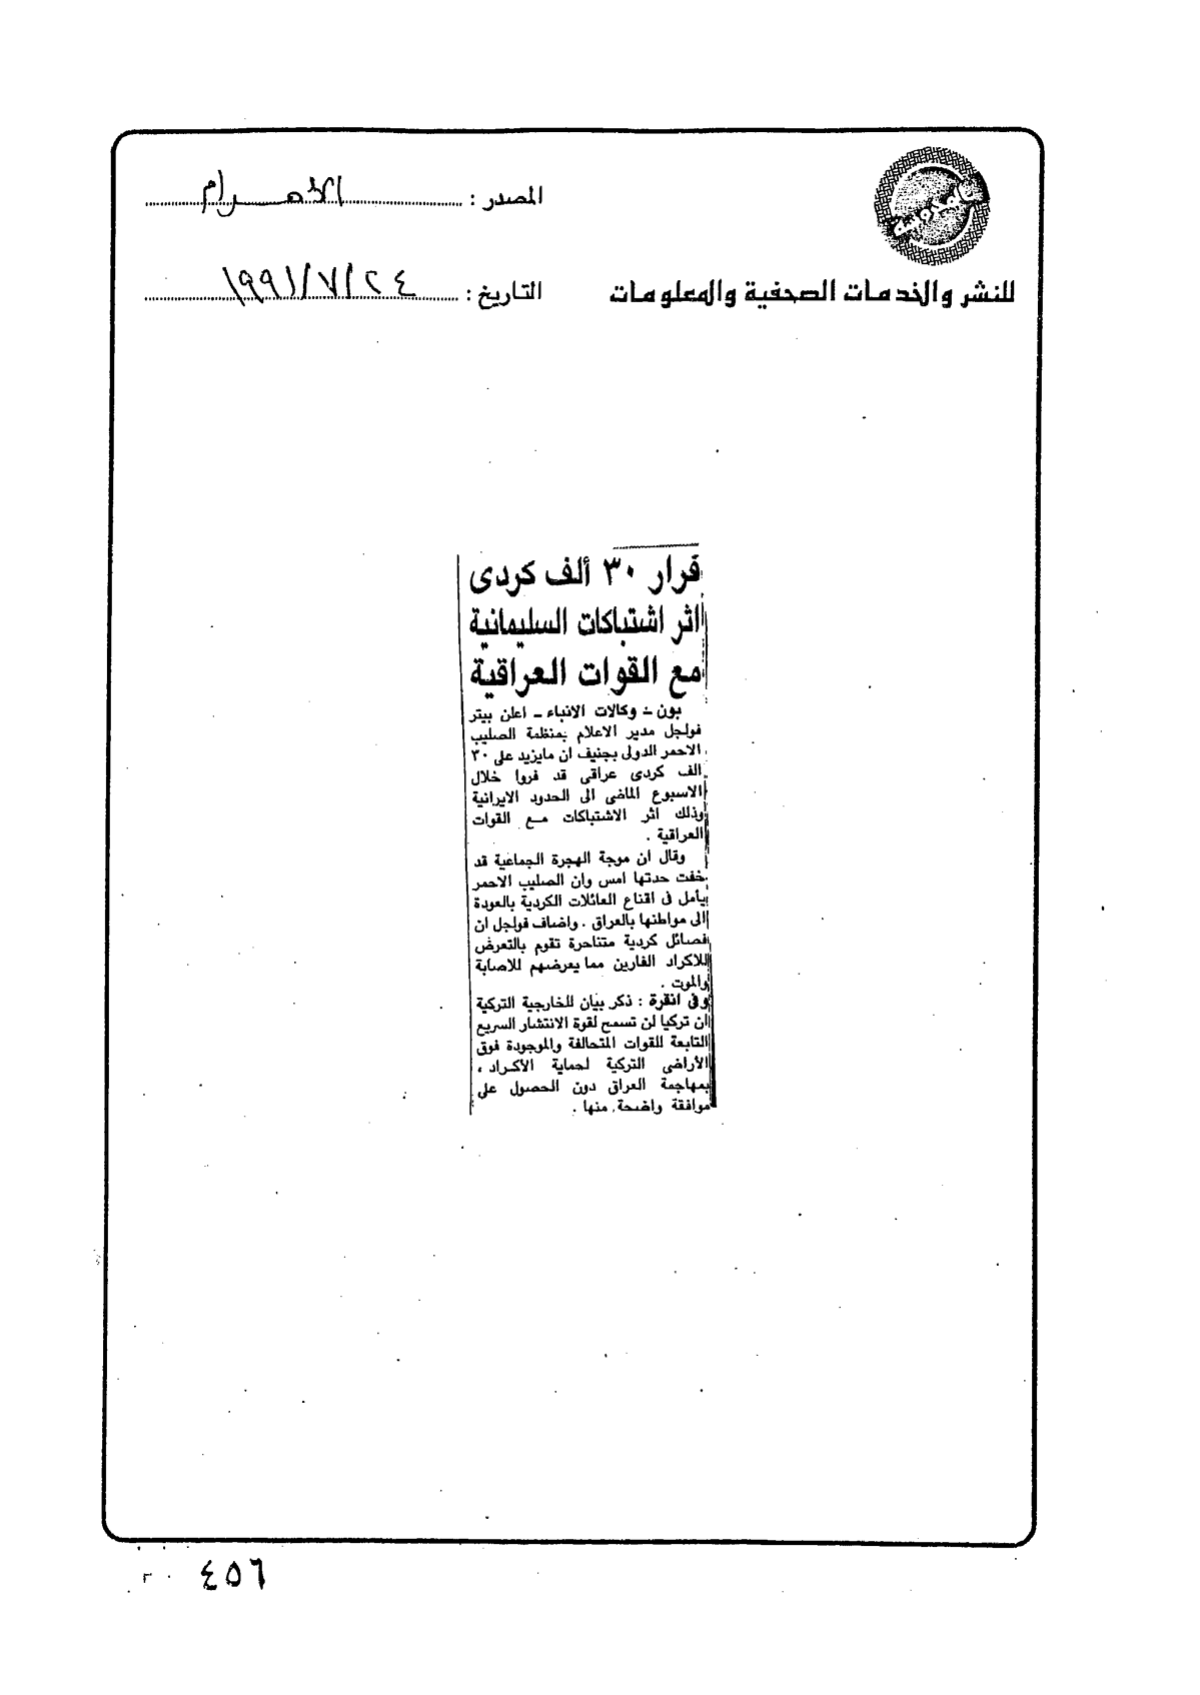 المصدر : الأهـــرام
للنشر والخدمات الصحفية والمعلومات
التاريخ : ٢٤ / ٧ / ١٩٩١
فرار ٣٠ ألف كردى
اثر اشتباكات السليمانية
مع القوات العراقية
بون ـ وكالات الانباء ـ اعلن بيتر
فولجل مدير الاعلام بمنظمة الصليب
الاحمر الدولى بجنيف ان مايزيد على ٣٠
الف كردى عراقى قد فروا خلال
الاسبوع الماضى الى الحدود الايرانية
وذلك اثر الاشتباكات مع القوات
العراقية .
وقال ان موجة الهجرة الجماعية قد
خفت حدتها امس وان الصليب الاحمر
يأمل فى اقناع العائلات الكردية بالعودة
الى مواطنها بالعراق . واضاف فولجل ان
فصائل كردية متناحرة تقوم بالتعرض
للاكراد الفارين مما يعرضهم للاصابة
والموت .
وفى انقرة : ذكر بيان للخارجية التركية
ان تركيا لن تسمح لقوة الانتشار السريع
التابعة للقوات المتحالفة والموجودة فوق
الأراضى التركية لحماية الأكراد ،
بمهاجمة العراق دون الحصول على
موافقة واضحة منها .
٤٥٦